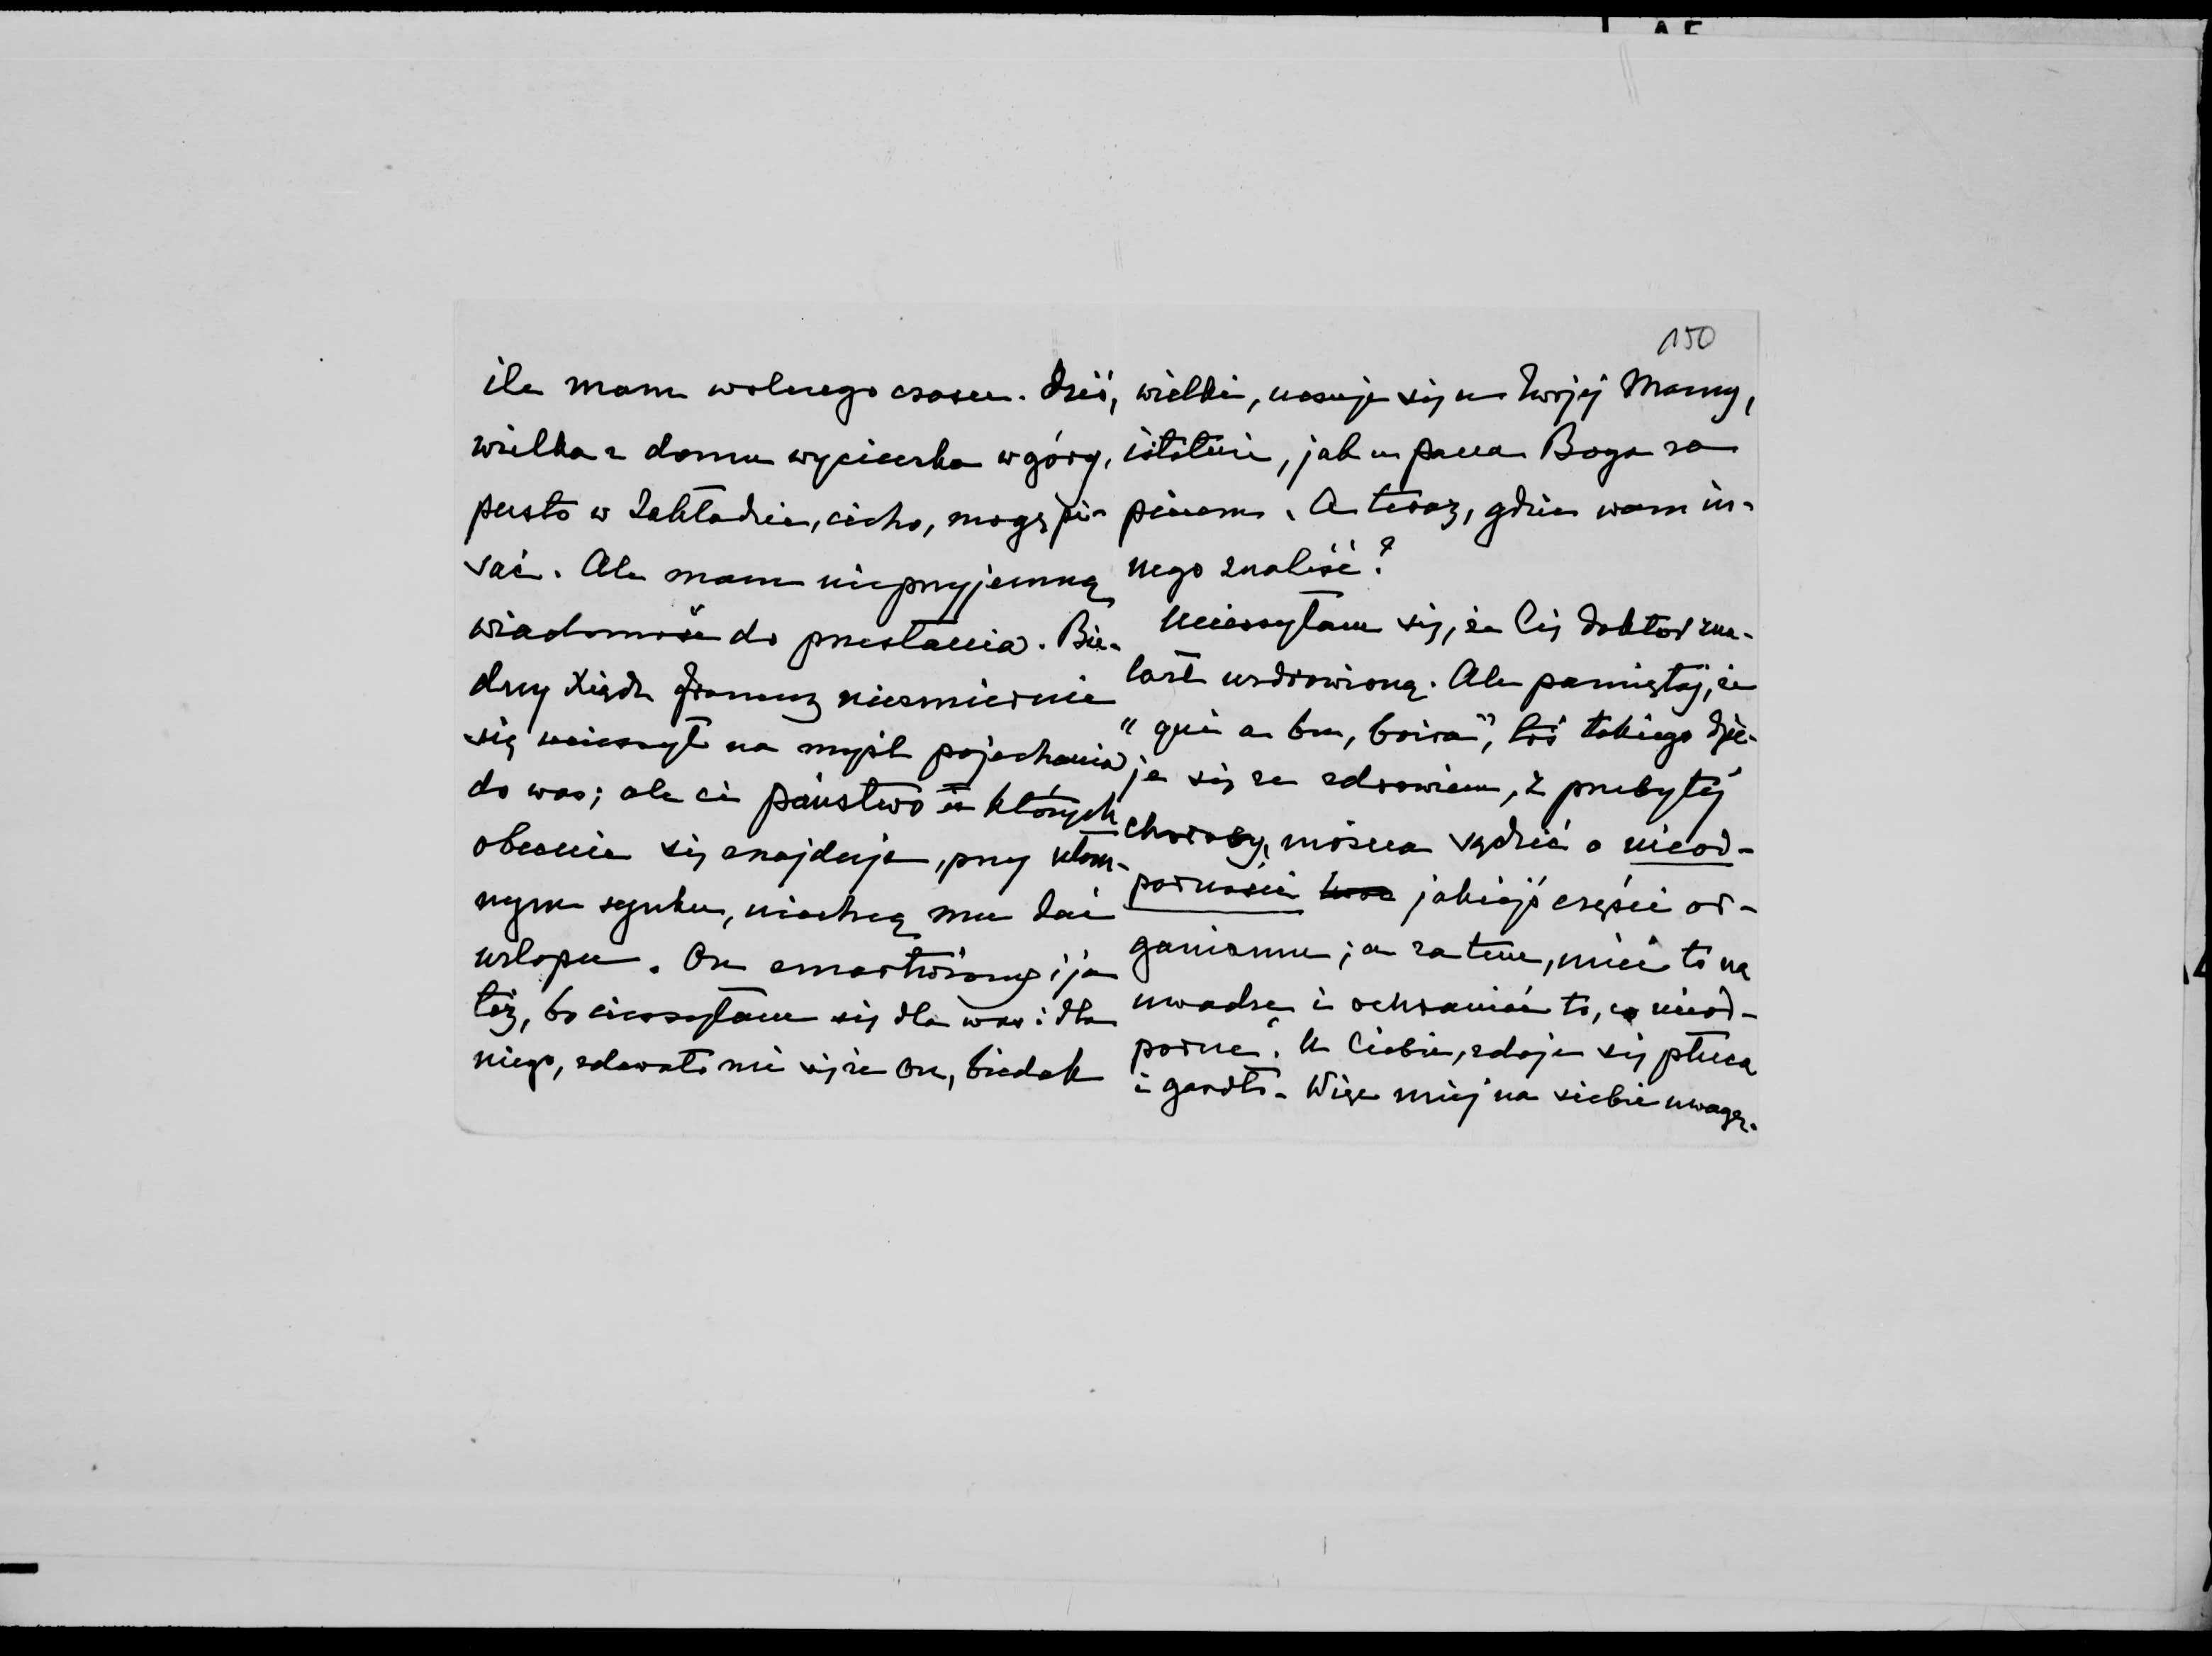 150
ile mam wolnego czasu. Dziś,
wielka z domu wycieczka w góry,
pusto w Zakładzie, cicho, mogę pi-
sać. Ale mam nieprzyjemną
wiadomość do przesłania. Bie-
dny Ksiądz francuz niezmiernie
się ucieszył na myśl pojechania
do was; ale ci państwo u których
obecnie się znajduje, przy ułom-
nym synku, niechcą mu dać
urlopu. On zmartwiony i ja
też, bo cieszyłam się dla was i dla
niego, zdawało mi się że on, biedak
wielki, uczuje się u Twojej Mamy,
istotnie, jak u pana Boga za
piecem. A teraz, gdzie wam in-
nego znaleść?
Ucieszyłam się, że Cię doktor zna-
lazł uzdrowioną. Ale pamiętaj, że
"qui a bu, boira", coś takiego dzie-
je się ze zdrowiem, z przebytej
choroby, można sądzić o nieod-
porności jakiejś części or-
ganizmu; a zatem, mieć to na
uwadze i ochraniać to, co nieod-
porne. U Ciebie, zdaje się płuca
i gardło. Więc miej na siebie uwagę.